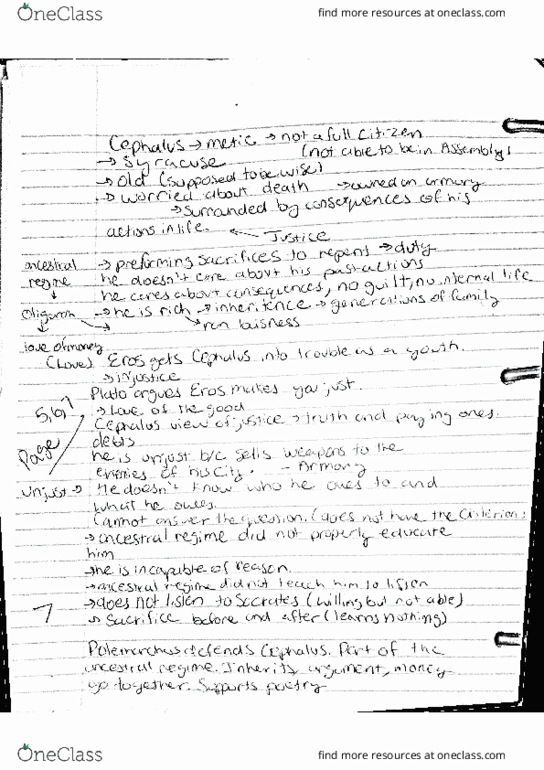 OneClass
find more resources at oneclass.com
Cephalus → metic → not a full citizen
(not able to be in Assembly)
→ Syracuse
→ Old (supposed to be wise)
→ worried about death → owned an armory
→ Surranded by consequences of his
actions in life. ← Justice
ancestral regime
→ preforming sacrifices to repent → duty
he doesn't care about his past actions
he cares about consequences, no guilt, no internal life
→ he is rich → inheritence → generations of family
→ ran buisness
love of money
(Love) Eros gets Cephalus into trouble as a youth.
→ injustice
Plato argues Eros makes you just.
→ Love of the good
Page 5,6,7
Cephalus view of justice → truth and paying ones
debts
he is unjust b/c sells weapons to the
enemies of his city. - Armory
unjust → He doesn't know who he owes to and
what he owes.
Cannot answer the question. (does not have the criterion)
→ ancestral regime did not properly educate
him
→ he is incapible of reason.
→ ancestral regime did not teach him to listen
7 → does not listen to Socrates (willing but not able)
→ Sacrifice before and after (learns nothing)
Polemarchus defends Cephalus. Part of the
ancestral regime. Inherits argument, money
go together. Supports poetry
OneClass
find more resources at oneclass.com